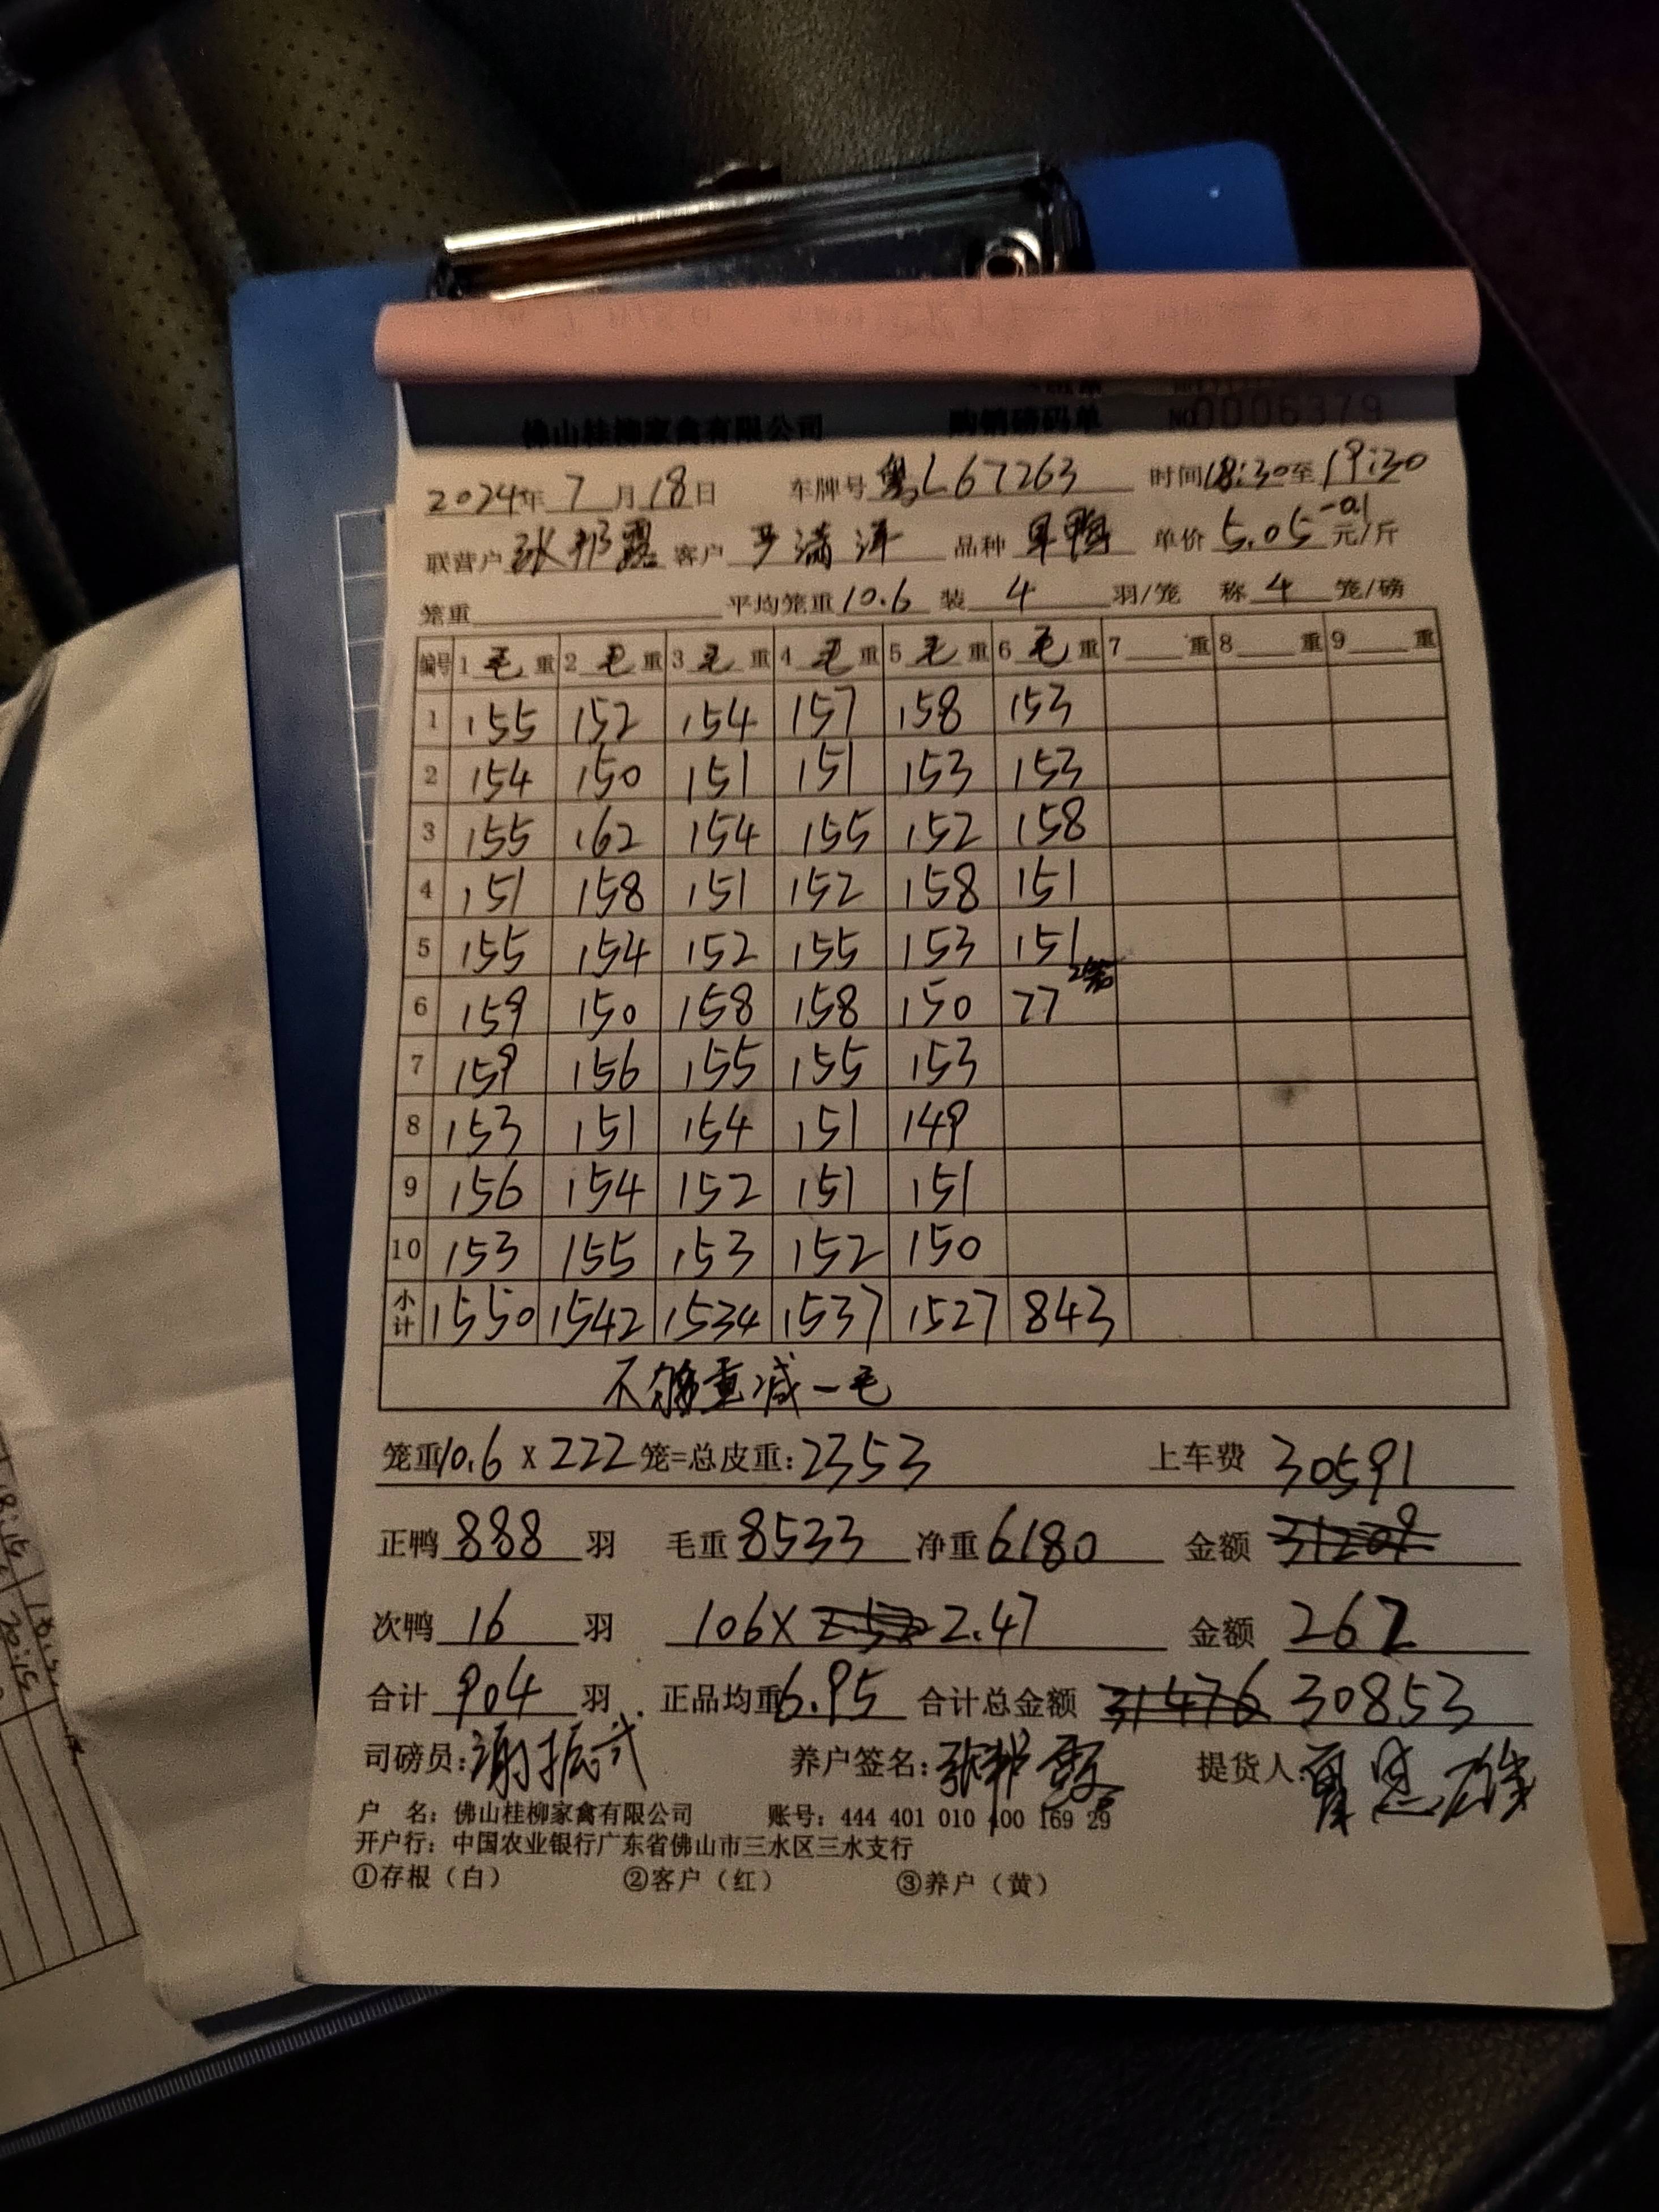 佛山桂柳家禽有限公司 购销磅码单 NO0006379
2024年 7 月 18 日 车牌号 粤L67263 时间 18:30 至 19:30
联营户 客户 品种 单价 5.05 -0.1 元/斤
笼重 平均笼重 10.6 装 4 羽/笼 称 4 笼/磅
编号 1 毛 重 2 毛 重 3 毛 重 4 毛 重 5 毛 重 6 毛 重 7 重 8 重 9 重
1 155 152 154 157 158 153
2 154 150 151 151 153 153
3 155 162 154 155 152 158
4 151 158 151 152 158 151
5 155 154 152 155 153 151
6 159 150 158 158 150 77 2笼
7 159 156 155 155 153
8 153 151 154 151 149
9 156 154 152 151 151
10 153 155 153 152 150
小计 1550 1542 1534 1537 1527 843
不够重减一毛
笼重 10.6 X 222 笼=总皮重: 2353 上车费 30591
正鸭 888 羽 毛重 8533 净重 6180 金额 31209
次鸭 16 羽 106X 2.47 金额 262
合计 904 羽 正品均重 6.95 合计总金额 31476 30853
司磅员: 谢振武 养户签名: 提货人:
户 名: 佛山桂柳家禽有限公司 账号: 444 401 010 400 169 29
开户行: 中国农业银行广东省佛山市三水区三水支行
①存根（白） ②客户（红） ③养户（黄）